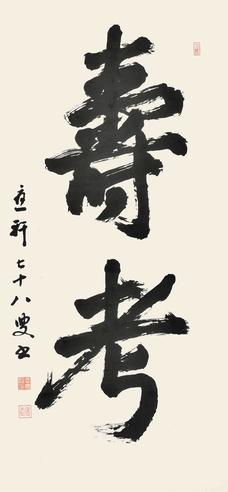 壽考
宜軒七十八叟書